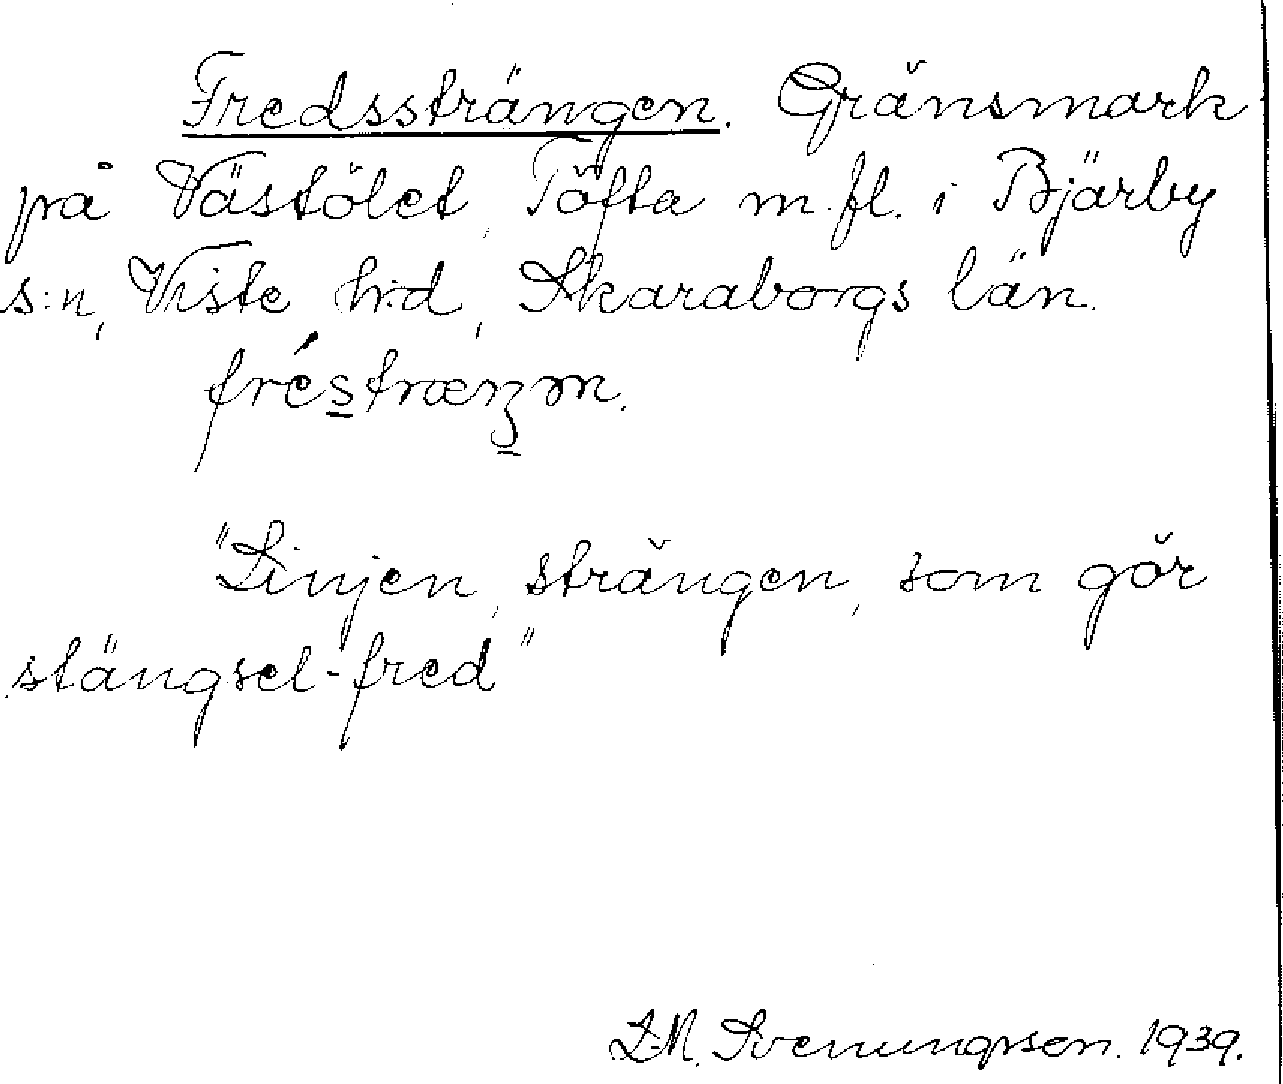 Fredssträngen. Gränsmark
på Västölet, Töfta m.fl. i Bjärby
s:n, Viste h:d, Skaraborgs län.
fréstræŋən.
"Linjen, strängen, som gör
stängsel-fred"
L.M. Svenungsson. 1939.